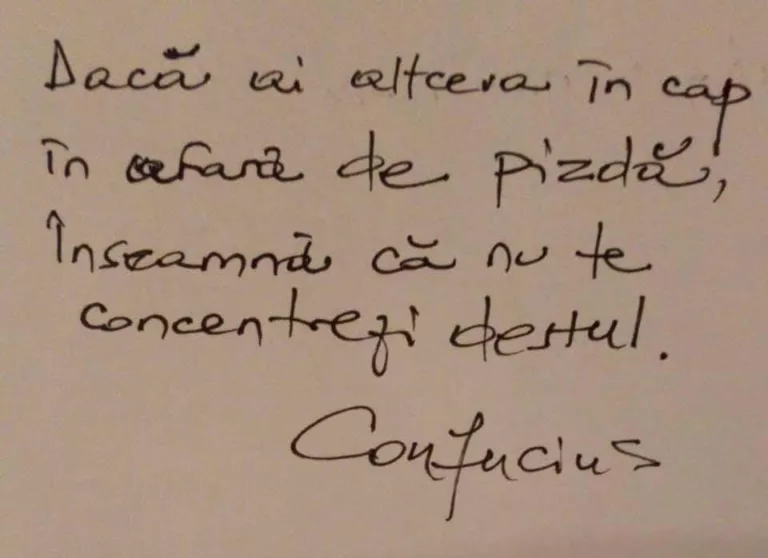 Dacă ai altceva în cap
în afară de pizdă,
înseamnă că nu te
concentrezi destul.
Confucius